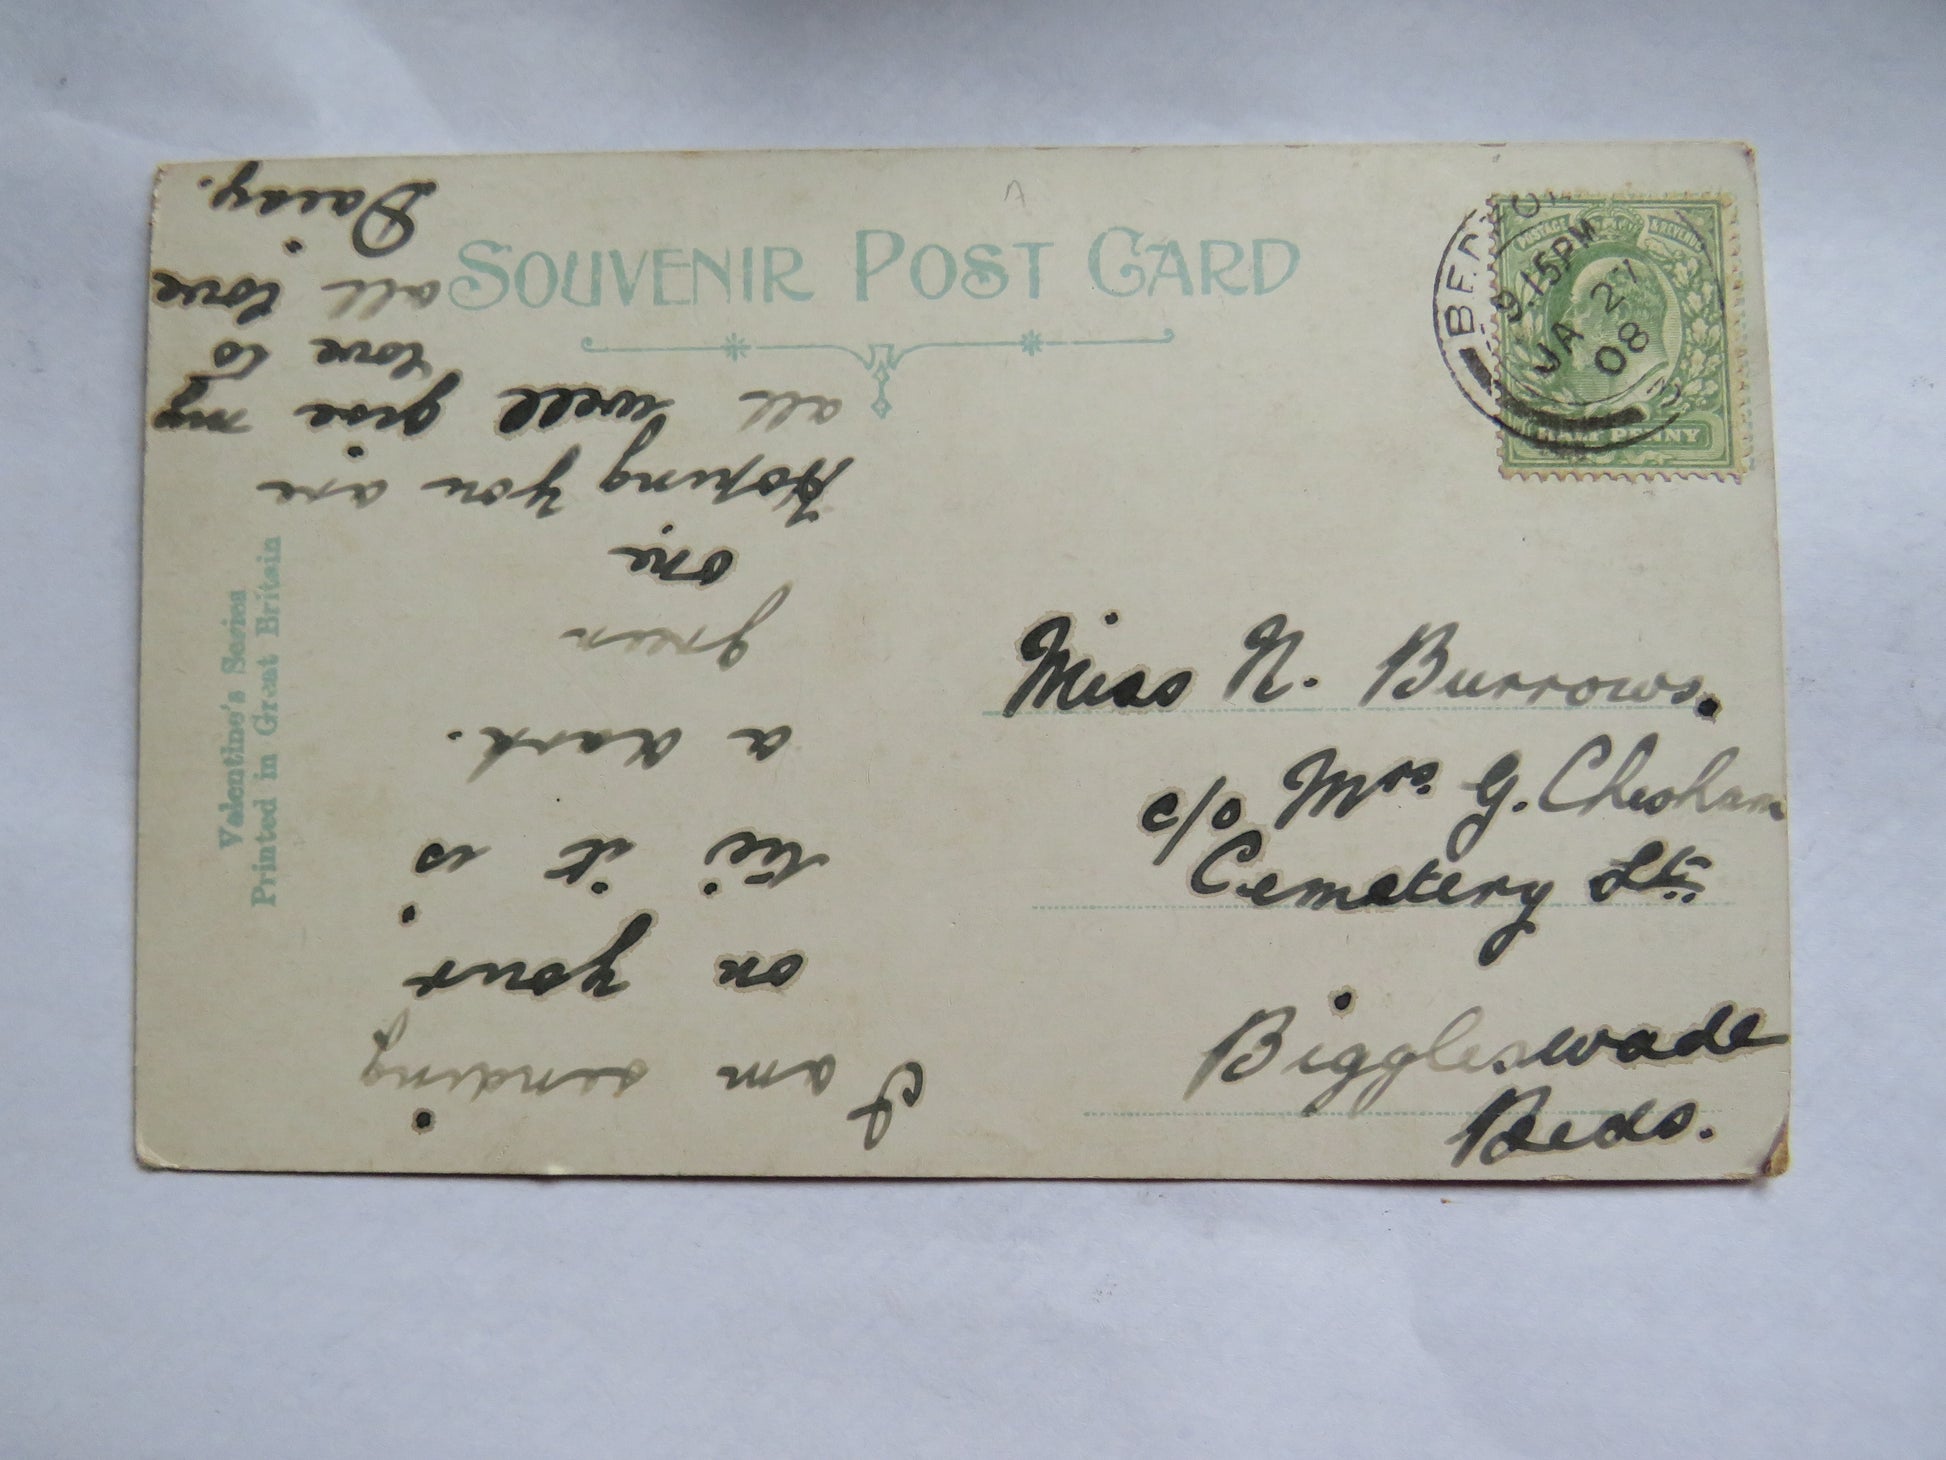 SOUVENIR POST CARD
Valentine's Series
Printed in Great Britain
POSTAGE & REVENUE
HALF PENNY
BEDFORD
9.15PM
JA 27
08
Miss N. Burrows.
c/o Mrs G. Chesham
Cemetery St
Biggleswade
Beds.
I am sending
on your
tie it is
a dark
green
one
Hoping you are
all well give my
love to
all love
Daisy.